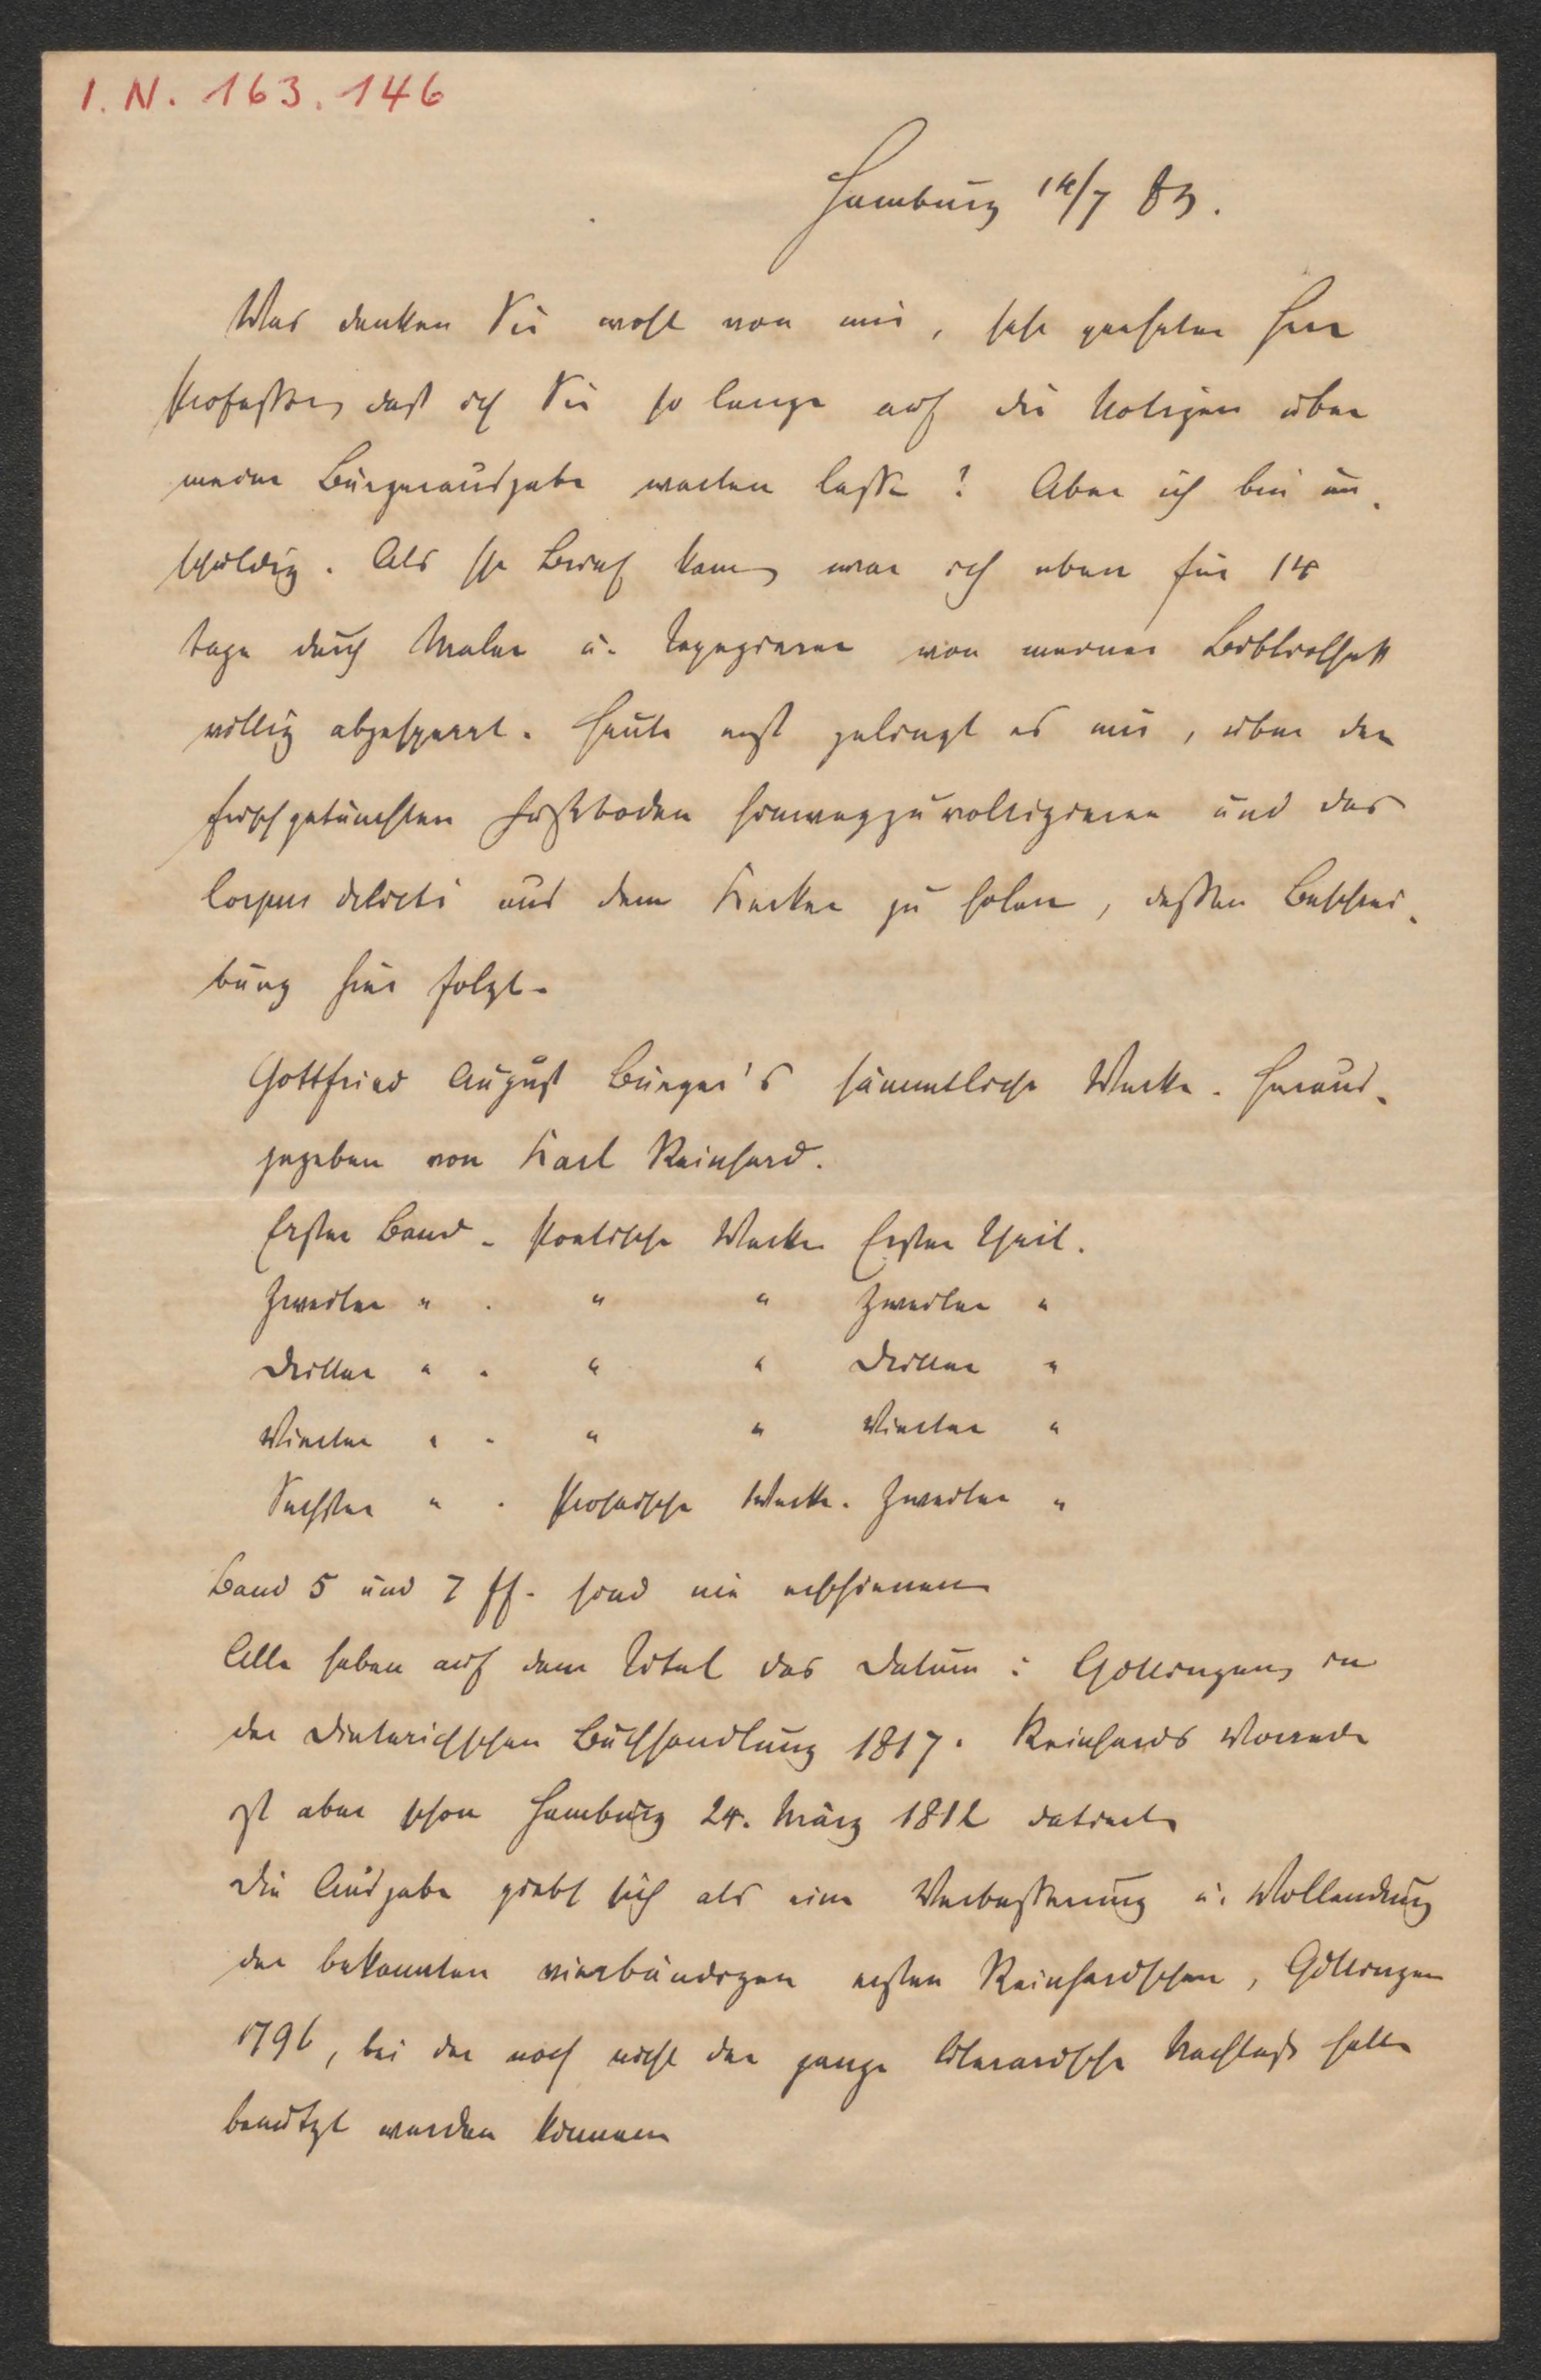 I. N. 163.146
Hamburg 14/7 83.
Was denken Sie wohl von mir, sehr geehrter Herr
Professor, daß ich Sie so lange auf die Notizen über
meine Bürgerausgabe warten lasse? Aber ich bin un-
schuldig. Als Ihr Brief kam, war ich eben für 14
Tage durch Maler u. Tapezierer von meiner Bibliothek
völlig abgesperrt. Heute erst gelingt es mir, über den
frischgetünchten Fußboden hinwegzuvoltigieren und das
Corpus delicti aus dem Kerker zu holen, dessen Beschrei-
bung hier folgt.
Gottfried August Bürger's sämmtliche Werke. Heraus-
gegeben von Karl Reinhard.
Erster Band. Poetische Werke Erster Theil.
Zweiter " . " " Zweiter "
Dritter " . " " Dritter "
Vierter " . " " Vierter "
Sechster " . Prosaische Werke. Zweiter "
Band 5 und 7 ff. sind nie erschienen
Alle haben auf dem Titel das Datum: Göttingen, in
der Dieterichschen Buchhandlung 1817. Reinhards Vorrede
ist aber schon Hamburg 24. März 1812 datiert.
Die Ausgabe giebt sich als eine Verbesserung u. Vollendung
der bekannten vierbändigen ersten Reinhardschen, Göttingen
1796, bei der noch nicht der ganze literarische Nachlaß hatte
benützt werden können